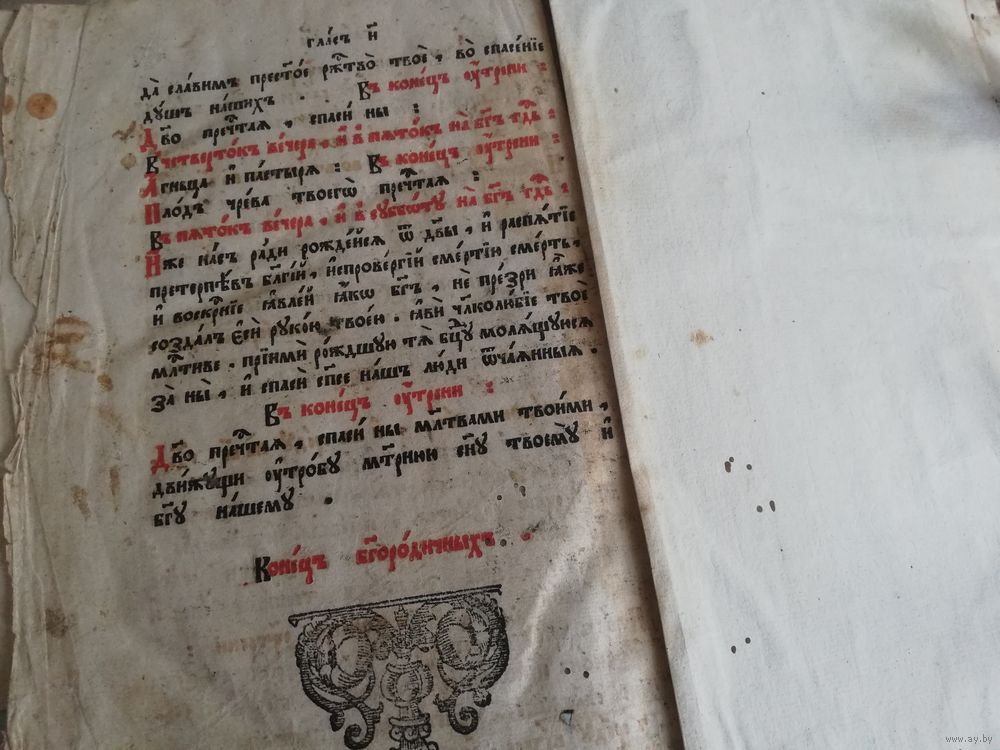 гла́съ и҃
да̀ сла́вимъ престо́е рж҃тво̀ твоѐ, во̀ спасе́нїе
ду́шъ на́шихъ . Въ коне́цъ ᲂу҆́трени :
Дв҃о пречⷭ҇таѧ, спаси́ ны :
В четверто́къ ве́чера, и҆ в пѧто́къ на̀ бг҃ъ гдⷭ҇ь :
А҆́гньца и҆ па́стырѧ : Въ коне́цъ ᲂу҆́трени :
Пло́дъ чре́ва твоегѡ̀ пречⷭ҇таѧ :
Въ пѧто́къ ве́чера, и҆ в суббѡ́ту на̀ бг҃ъ гдⷭ҇ь :
И҆́же на́съ ра́ди рожде́йсѧ ѿ дв҃ы, и҆ распѧ́тїе
претерпѣ́въ бл҃гі́й, и҆спрове́ргїй сме́ртїю сме́рть,
и҆ воскрⷭ҇нїе ꙗ҆вле́й ꙗ҆́кѡ бг҃ъ, нѐ пре́зри ꙗ҆̀же
созда́лъ є҆сѝ руко́ю твое́ю . ꙗ҆вѝ чл҃колю́бїе твоѐ
млⷭ҇тиве . прїимѝ ро́ждшую тѧ̀ бцⷣу молѧ́щуюсѧ
за̀ ны̀, и҆ спасѝ сп҃се на́шъ лю́ди ѿча́ѧнныѧ .
Въ коне́цъ ᲂу҆́трени :
Дв҃о пречⷭ҇таѧ, спаси́ ны мл҃твами твои́ми,
дви́жущи ᲂу҆тро́бу мт҃рнюю сн҃у твоему̀ и҆
бг҃у на́шему .
Коне́цъ бг҃оро́дичныхъ .
www.ay.by